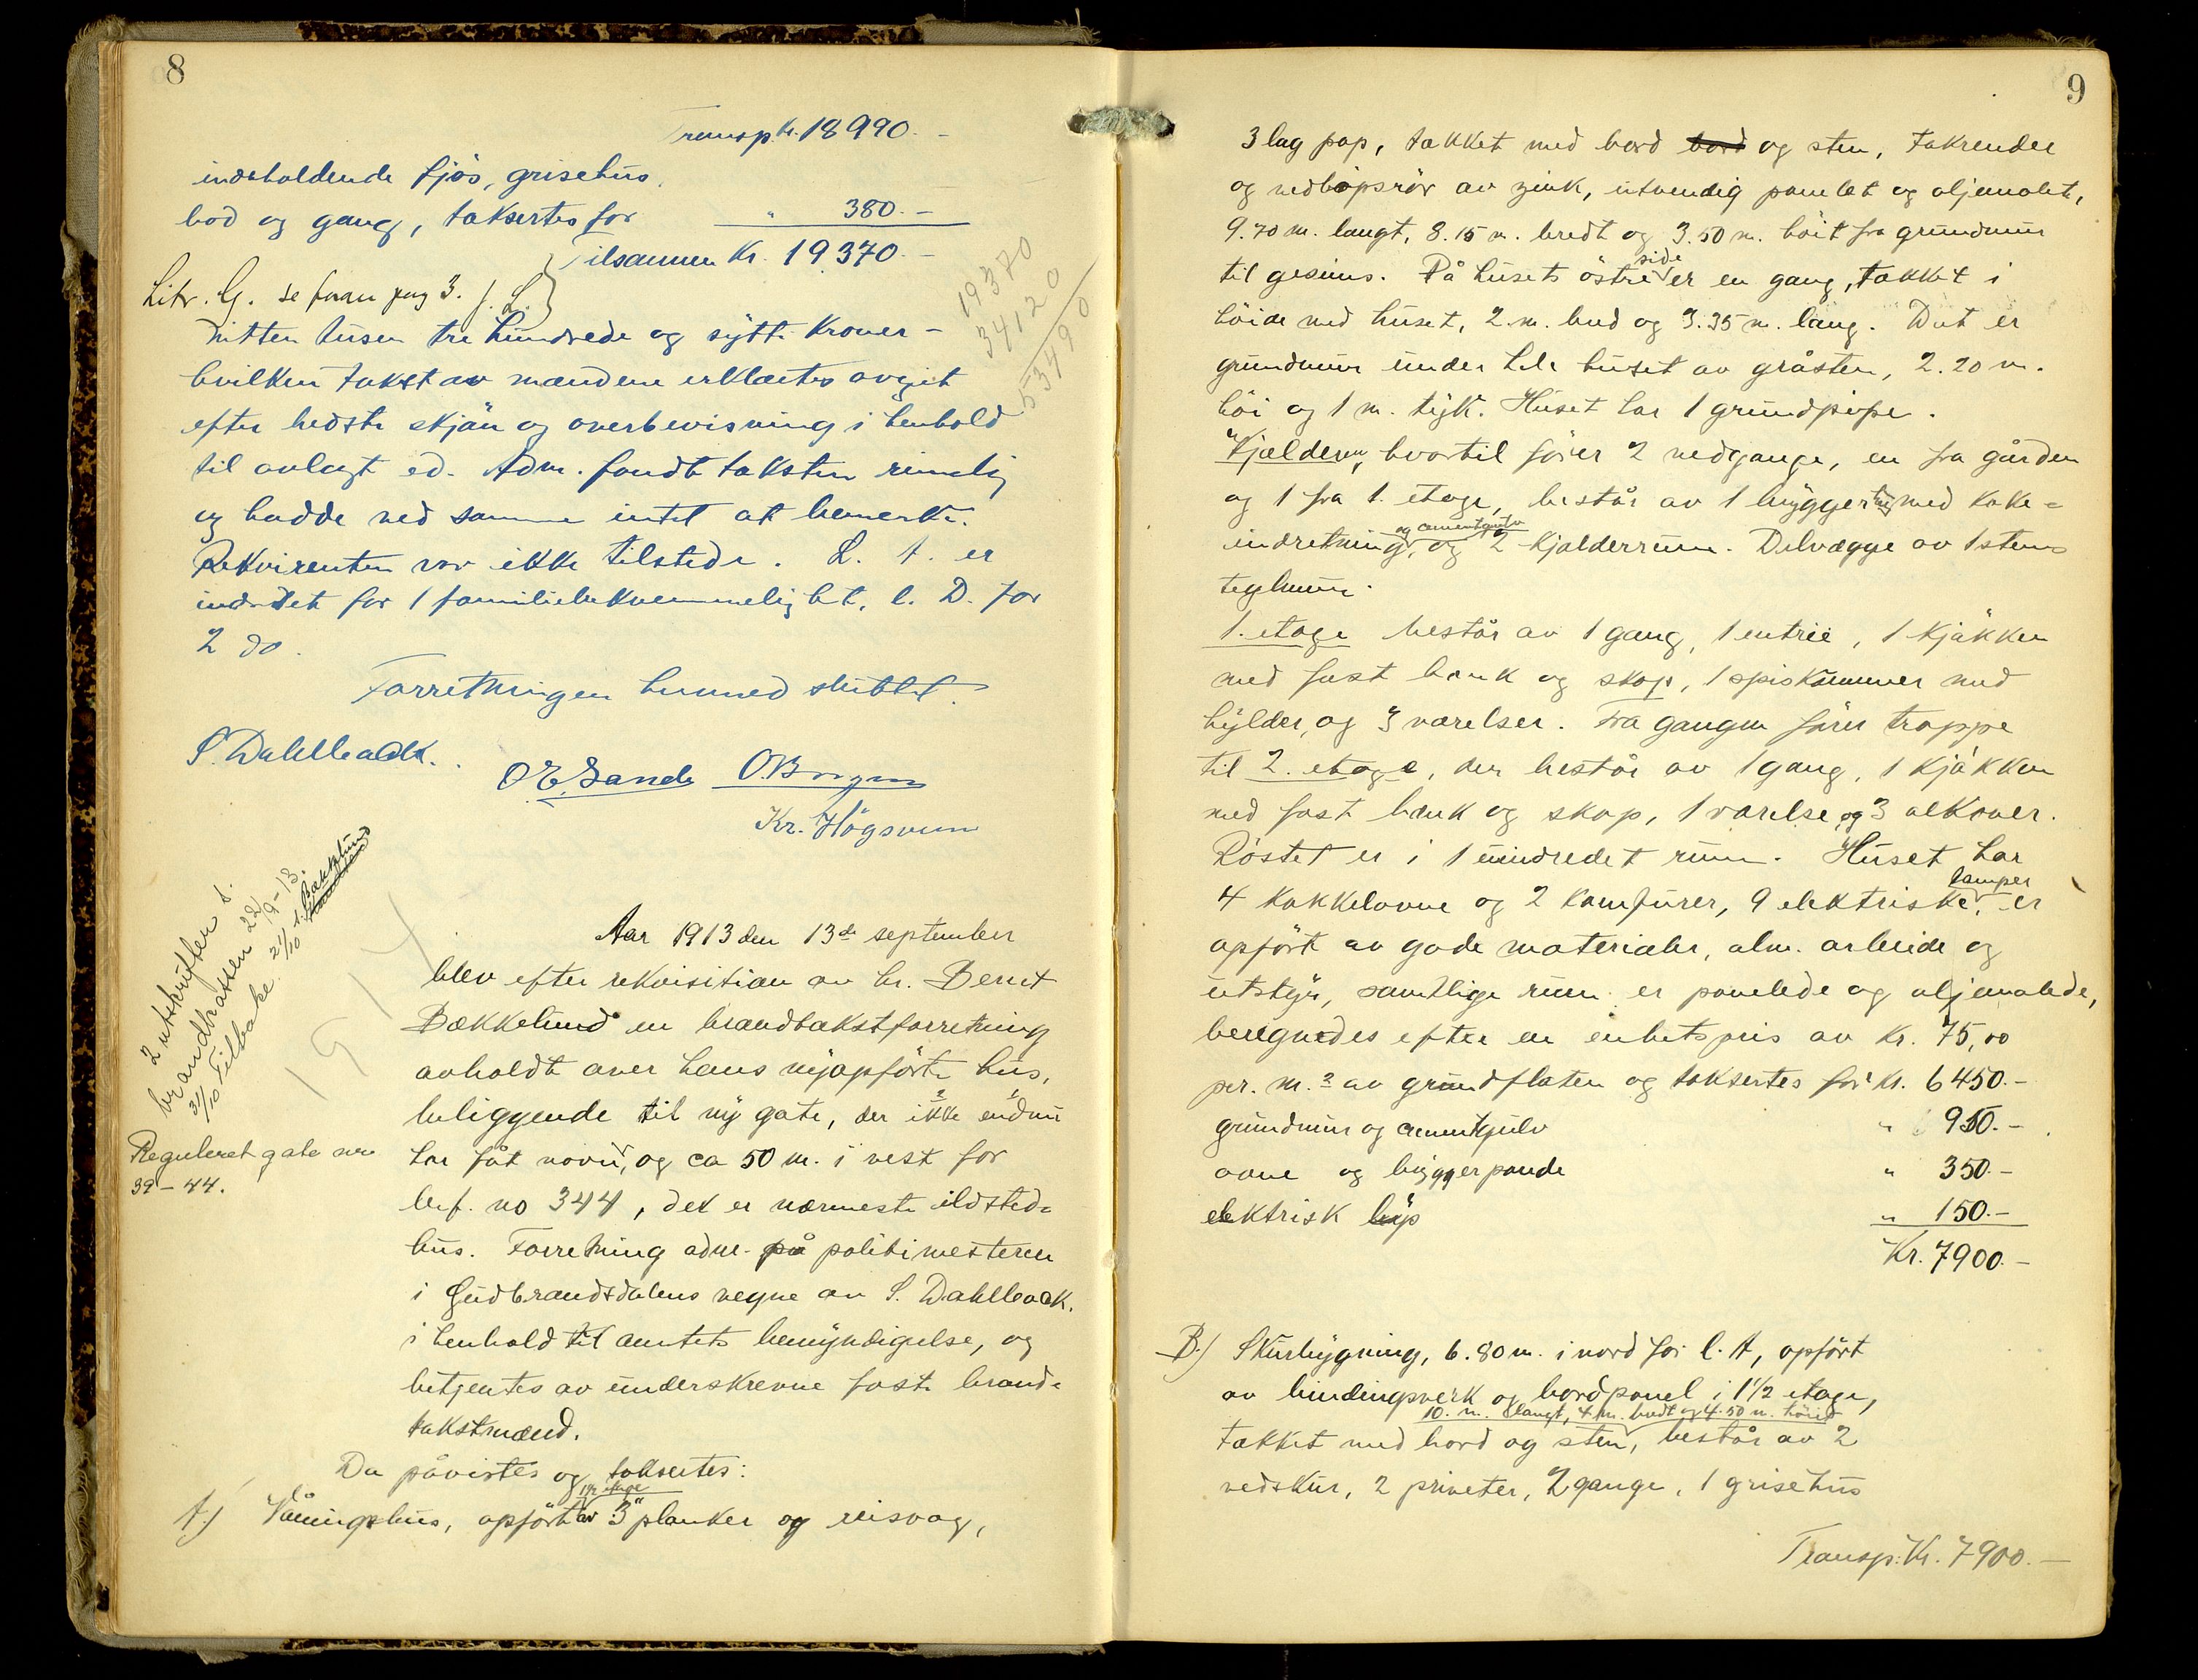 8
Transp. Kr. 18990.-
indeholdende fjøs, grisehus,
bod og gang, taksertes for " 380.-
Tilsammen Kr. 19370.-
Litr. G. se foran pag 3. S. D.
Nitten tusen tre hundrede og sytti Kroner -
hvilken takst av mændene erklærtes avgit
efter bedste skjøn og overbevisning i henhold
til avlagt ed. Adm. fandt taksten rimelig
og hadde ved samme intet at bemerke.
Rekvirenten var ikke tilstede. L. A. er
indredet for 1 familiebekvemmelighet, l. D. for
2 do.
Forretningen hermed sluttet.
S. Dahlback.
O E. Sande O. Borgen
Kr. Högsveen
19370
34120
53490
1914
2 utskrifter s.
brandkassen 22/9-13.
31/10 Tilbake 21/10 s. Bækkelund
Reguleret gate nr
39-44.
Aar 1913 den 13de september
blev efter rekvisition av hr. Bernt
Bækkelund en brandtakstforretning
avholdt over hans nyopførte hus,
beliggende til ny gate, der ikke endnu
har fåt navn, og ca 50 m. i vest for
br.f. no 344, det er nærmeste ildsted-
hus. Forretning adm. på politimesteren
i Gudbrandsdalens vegne av S. Dahlback.
i henhold til amtets bemyndigelse, og
betjentes av underskrevne faste brand-
takstmænd.
Da påvistes og taksertes:
1½ etage
A.) Våningshus, opført av 3" planker og reisvag,
9
3 lag pap, tækket med bord bord og sten, takrender
og nedløpsrör av zink, utvendig panelet og oljemalet,
9.70 m. langt, 8.15 m. bredt og 3.50 m. höit fra grundmur
til gesims. På husets östre side er en gang, tækket i
höide med huset, 2 m. bred og 3.35 m. lang. Det er
grundmur under hele huset av gråsten, 2.20 m.
höi og 1 m. tyk. Huset har 1 grundpipe.
Kjelderen, hvortil förer 2 nedgange, en fra gården
og 1 fra 1. etage, består av 1 bryggerhus med koke-
og cementgulv
indretning, og 2 kjelderrum. Delvægge av 1 stens
teglmur.
1. etage består av 1 gang, 1 entrée, 1 kjökken
med fast bænk og skap, 1 spiskammer med
hylder, og 3 værelser. Fra gangen förer trappe
til 2. etage, der består av 1 gang, 1 kjökken
med fast bænk og skap, 1 værelse og 3 alkover.
Röstet er i 1 uindredet rum. Huset har
4 kakkelovne og 2 komfurer, 9 elektriske lamper, er
opført av gode materialer, alm. arbeide og
utstyr, samtlige rum er panelede og oljemalede,
beregnedes efter en enhetspris av kr. 75,00
pr. m.2 av grundflaten og taksertes for kr. 6450.-
grundmur og cementgulv " 950.-
ovne og bryggerpande " 350.-
elektrisk lys " 150.-
Kr. 7900.-
B.) Skurbygning, 6.80 m. i nord for l. A, opført
av bindingsverk og bordpanel i 1½ etage,
10. m. langt, 4 m. bredt og 4.50 m. höit
tækket med bord og sten, består av 2
vedskur, 2 priveter, 2 gange, 1 grisehus
Transp. Kr. 7900.-